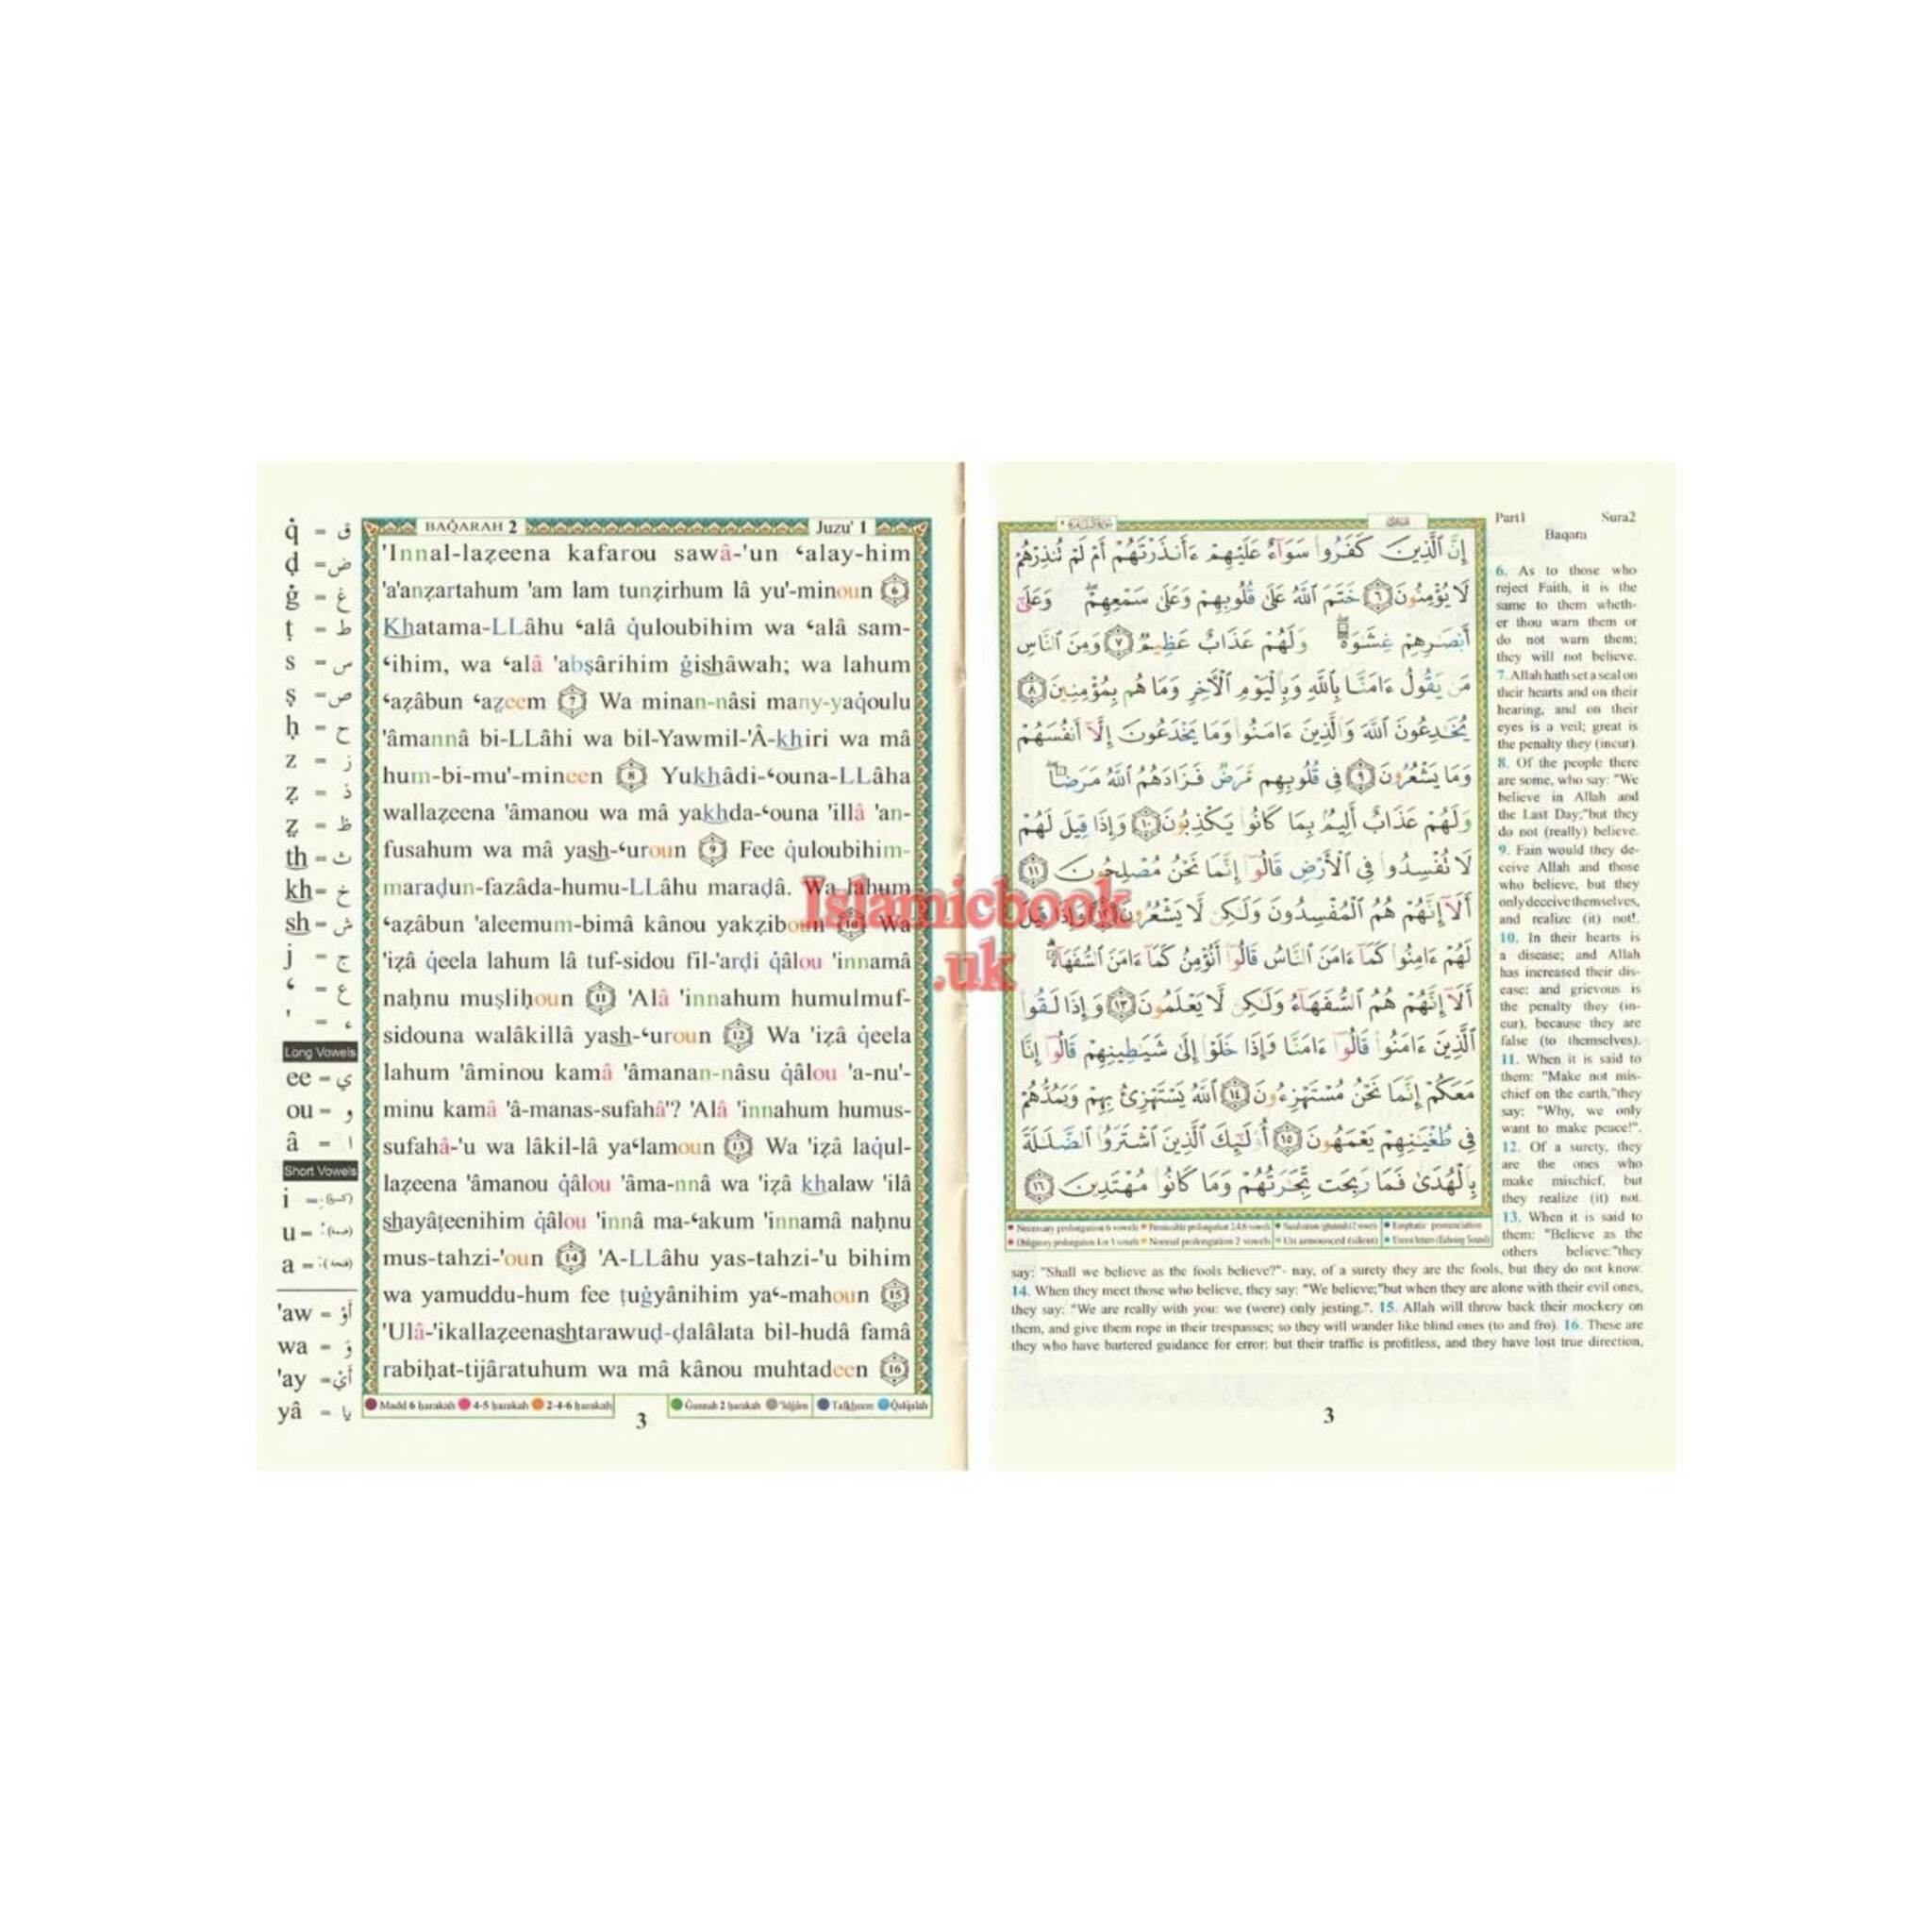 q̇ = ق
ḍ = ض
ġ = غ
ṭ = ط
s = س
ṣ = ص
ḥ = ح
z = ز
ẓ = ذ
ẓ̱ = ظ
th = ث
kh = خ
sh = ش
j = ج
ʿ = ع
' = ء
Long Vowels
ee = ي
ou = و
â = ا
Short Vowels
i =
u =
a =
'aw = أَوْ
wa = وَ
'ay = أَيْ
yâ = يا
BAQ̇ARAH 2 Juzu' 1
'Innal-laẓeena kafarou sawâ-'un ʿalay-him
'a'anẓartahum 'am lam tunẓirhum lâ yu'-minoun 6
Khatama-LLâhu ʿalâ q̇uloubihim wa ʿalâ sam-
ʿihim, wa ʿalâ 'abṣârihim ġishâwah; wa lahum
ʿaẓâbun ʿaẓ̱eem 7 Wa minan-nâsi many-yaq̇oulu
'âmannâ bi-LLâhi wa bil-Yawmil-'Â-khiri wa mâ
hum-bi-mu'-mineen 8 Yukhâdi-ʿouna-LLâha
wallaẓeena 'âmanou wa mâ yakhda-ʿouna 'illâ 'an-
fusahum wa mâ yash-ʿuroun 9 Fee q̇uloubihim-
maraḍun-fazâda-humu-LLâhu maraḍâ. Wa lahum
ʿaẓâbun 'aleemum-bimâ kânou yakẓiboun 10 Wa
'iẓâ q̇eela lahum lâ tuf-sidou fil-'arḍi q̇âlou 'innamâ
naḥnu muṣliḥoun 11 'Alâ 'innahum humulmuf-
sidouna walâkillâ yash-ʿuroun 12 Wa 'iẓâ q̇eela
lahum 'âminou kamâ 'âmanan-nâsu q̇âlou 'a-nu'-
minu kamâ 'â-manas-sufahâ'? 'Alâ 'innahum humus-
sufahâ-'u wa lâkil-lâ yaʿlamoun 13 Wa 'iẓâ laq̇ul-
laẓeena 'âmanou q̇âlou 'âma-nnâ wa 'iẓâ khalaw 'ilâ
shayâṭeenihim q̇âlou 'innâ ma-ʿakum 'innamâ naḥnu
mus-tahzi-'oun 14 'A-LLâhu yas-tahzi-'u bihim
wa yamuddu-hum fee ṭuġyânihim yaʿ-mahoun 15
'Ulâ-'ikallaẓeenashtarawuḍ-ḍalâlata bil-hudâ famâ
rabiḥat-tijâratuhum wa mâ kânou muhtadeen 16
Madd 6 ḥarakah 4-5 ḥarakah 2-4-6 ḥarakah Ġunnah 2 ḥarakah 'Idġâm Tafkheem Q̇alq̇alah
3
إِنَّ ٱلَّذِينَ كَفَرُوا۟ سَوَآءٌ عَلَيْهِمْ ءَأَنذَرْتَهُمْ أَمْ لَمْ تُنذِرْهُمْ
لَا يُؤْمِنُونَ ٦ خَتَمَ ٱللَّهُ عَلَىٰ قُلُوبِهِمْ وَعَلَىٰ سَمْعِهِمْ ۖ وَعَلَىٰٓ
أَبْصَٰرِهِمْ غِشَٰوَةٌ ۖ وَلَهُمْ عَذَابٌ عَظِيمٌ ٧ وَمِنَ ٱلنَّاسِ
مَن يَقُولُ ءَامَنَّا بِٱللَّهِ وَبِٱلْيَوْمِ ٱلْءَاخِرِ وَمَا هُم بِمُؤْمِنِينَ ٨
يُخَٰدِعُونَ ٱللَّهَ وَٱلَّذِينَ ءَامَنُوا۟ وَمَا يَخْدَعُونَ إِلَّآ أَنفُسَهُمْ
وَمَا يَشْعُرُونَ ٩ فِى قُلُوبِهِم مَّرَضٌ فَزَادَهُمُ ٱللَّهُ مَرَضًا ۖ
وَلَهُمْ عَذَابٌ أَلِيمٌۢ بِمَا كَانُوا۟ يَكْذِبُونَ ١٠ وَإِذَا قِيلَ لَهُمْ
لَا تُفْسِدُوا۟ فِى ٱلْأَرْضِ قَالُوٓا۟ إِنَّمَا نَحْنُ مُصْلِحُونَ ١١
أَلَآ إِنَّهُمْ هُمُ ٱلْمُفْسِدُونَ وَلَٰكِن لَّا يَشْعُرُونَ ١٢ وَإِذَا قِيلَ
لَهُمْ ءَامِنُوا۟ كَمَآ ءَامَنَ ٱلنَّاسُ قَالُوٓا۟ أَنُؤْمِنُ كَمَآ ءَامَنَ ٱلسُّفَهَآءُ ۗ
أَلَآ إِنَّهُمْ هُمُ ٱلسُّفَهَآءُ وَلَٰكِن لَّا يَعْلَمُونَ ١٣ وَإِذَا لَقُوا۟
ٱلَّذِينَ ءَامَنُوا۟ قَالُوٓا۟ ءَامَنَّا وَإِذَا خَلَوْا۟ إِلَىٰ شَيَٰطِينِهِمْ قَالُوٓا۟ إِنَّا
مَعَكُمْ إِنَّمَا نَحْنُ مُسْتَهْزِءُونَ ١٤ ٱللَّهُ يَسْتَهْزِئُ بِهِمْ وَيَمُدُّهُمْ
فِى طُغْيَٰنِهِمْ يَعْمَهُونَ ١٥ أُو۟لَٰٓئِكَ ٱلَّذِينَ ٱشْتَرَوُا۟ ٱلضَّلَٰلَةَ
بِٱلْهُدَىٰ فَمَا رَبِحَت تِّجَٰرَتُهُمْ وَمَا كَانُوا۟ مُهْتَدِينَ ١٦
Necessary prolongation 6 vowels Permissible prolongation 2,4,6 vowels Nasalization (ghunnah) 2 vowels Emphatic pronunciation
Obligatory prolongation 4 or 5 vowels Normal prolongation 2 vowels Un announced (silent) Unrest letters (Echoing Sound)
Part1 Sura2
Baqara
6. As to those who
reject Faith, it is the
same to them wheth-
er thou warn them or
do not warn them;
they will not believe.
7. Allah hath set a seal on
their hearts and on their
hearing, and on their
eyes is a veil; great is
the penalty they (incur).
8. Of the people there
are some, who say: "We
believe in Allah and
the Last Day;"but they
do not (really) believe.
9. Fain would they de-
ceive Allah and those
who believe, but they
only deceive themselves,
and realize (it) not!.
10. In their hearts is
a disease; and Allah
has increased their dis-
ease: and grievous is
the penalty they (in-
cur), because they are
false (to themselves).
11. When it is said to
them: "Make not mis-
chief on the earth,"they
say: "Why, we only
want to make peace!".
12. Of a surety, they
are the ones who
make mischief, but
they realize (it) not.
13. When it is said to
them: "Believe as the
others believe:"they
say: "Shall we believe as the fools believe?"- nay, of a surety they are the fools, but they do not know.
14. When they meet those who believe, they say: "We believe;"but when they are alone with their evil ones,
they say: "We are really with you: we (were) only jesting.". 15. Allah will throw back their mockery on
them, and give them rope in their trespasses; so they will wander like blind ones (to and fro). 16. These are
they who have bartered guidance for error: but their traffic is profitless, and they have lost true direction,
3
Islamicbook
.uk